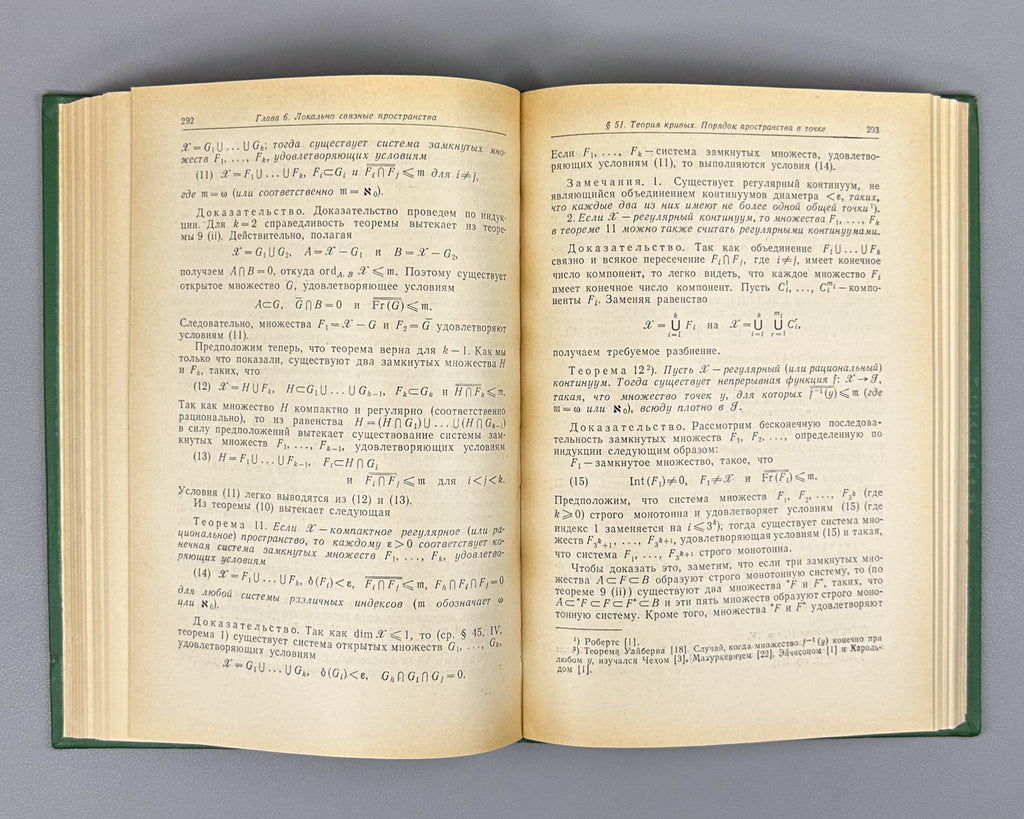 292
Глава 6. Локально связные пространства
𝒳 = G₁ ∪ ... ∪ Gₖ; тогда существует система замкнутых мно-
жеств F₁, ..., Fₖ, удовлетворяющих условиям
(11) 𝒳 = F₁ ∪ ... ∪ Fₖ, Fᵢ ⊂ Gᵢ и F̅ᵢ̅ ̅∩̅ ̅F̅ⱼ̅ ⩽ 𝔪 для i ≠ j,
где 𝔪 = ω (или соответственно 𝔪 = ℵ₀).
Доказательство. Доказательство проведем по индук-
ции. Для k = 2 справедливость теоремы вытекает из теоре-
мы 9 (ii). Действительно, полагая
𝒳 = G₁ ∪ G₂, A = 𝒳 − G₁ и B = 𝒳 − G₂,
получаем A ∩ B = 0, откуда ord_{A, B} 𝒳 ⩽ 𝔪. Поэтому существует
открытое множество G, удовлетворяющее условиям
A ⊂ G, G̅ ∩ B = 0 и F̅r̅ ̅(̅G̅)̅ ⩽ 𝔪.
Следовательно, множества F₁ = 𝒳 − G и F₂ = G̅ удовлетворяют
условиям (11).
Предположим теперь, что теорема верна для k − 1. Как мы
только что показали, существуют два замкнутых множества H
и Fₖ, таких, что
(12) 𝒳 = H ∪ Fₖ, H ⊂ G₁ ∪ ... ∪ Gₖ₋₁, Fₖ ⊂ Gₖ и H̅ ̅∩̅ ̅F̅ₖ̅ ⩽ 𝔪.
Так как множество H компактно и регулярно (соответственно
рационально), то из равенства H = (H ∩ G₁) ∪ ... ∪ (H ∩ Gₖ₋₁)
в силу предположений вытекает существование системы зам-
кнутых множеств F₁, ..., Fₖ₋₁, удовлетворяющих условиям
(13) H = F₁ ∪ ... ∪ Fₖ₋₁, Fᵢ ⊂ H ∩ Gᵢ
и F̅ᵢ̅ ̅∩̅ ̅F̅ⱼ̅ ⩽ 𝔪 для i < j < k.
Условия (11) легко выводятся из (12) и (13).
Из теоремы (10) вытекает следующая
Теорема 11. Если 𝒳 — компактное регулярное (или ра-
циональное) пространство, то каждому ε > 0 соответствует ко-
нечная система замкнутых множеств F₁, ..., Fₖ, удовлетво-
ряющих условиям
(14) 𝒳 = F₁ ∪ ... ∪ Fₖ, δ(Fᵢ) < ε, F̅ᵢ̅ ̅∩̅ ̅F̅ⱼ̅ ⩽ 𝔪, Fₕ ∩ Fᵢ ∩ Fⱼ = 0
для любой системы различных индексов (𝔪 обозначает ω
или ℵ₀).
Доказательство. Так как dim 𝒳 ⩽ 1, то (ср. § 45, IV,
теорема 1) существует система открытых множеств G₁, ..., Gₖ,
удовлетворяющих условиям
𝒳 = G₁ ∪ ... ∪ Gₖ, δ(Gᵢ) < ε, Gₕ ∩ Gᵢ ∩ Gⱼ = 0.
§ 51. Теория кривых. Порядок пространства в точке
293
Если F₁, ..., Fₖ — система замкнутых множеств, удовлетво-
ряющих условиям (11), то выполняются условия (14).
Замечания. 1. Существует регулярный континуум, не
являющийся объединением континуумов диаметра < ε, таких,
что каждые два из них имеют не более одной общей точки ¹).
2. Если 𝒳 — регулярный континуум, то множества F₁, ..., Fₖ
в теореме 11 можно также считать регулярными континуумами.
Доказательство. Так как объединение F₁ ∪ ... ∪ Fₖ
связно и всякое пересечение Fᵢ ∩ Fⱼ, где i ≠ j, имеет конечное
число компонент, то легко видеть, что каждое множество Fᵢ
имеет конечное число компонент. Пусть Cᵢ¹, ..., Cᵢ^{mᵢ} — компо-
ненты Fᵢ. Заменяя равенство
𝒳 = ⋃_{i=1}^{k} Fᵢ на 𝒳 = ⋃_{i=1}^{k} ⋃_{r=1}^{mᵢ} Cᵢʳ,
получаем требуемое разбиение.
Теорема 12 ²). Пусть 𝒳 — регулярный (или рациональный)
континуум. Тогда существует непрерывная функция f: 𝒳 → 𝒥,
такая, что множество точек y, для которых f̅⁻̅¹̅ ̅(̅y̅)̅ ⩽ 𝔪 (где
𝔪 = ω или ℵ₀), всюду плотно в 𝒥.
Доказательство. Рассмотрим бесконечную последова-
тельность замкнутых множеств F₁, F₂, ..., определенную по
индукции следующим образом:
F₁ — замкнутое множество, такое, что
(15) Int (F₁) ≠ 0, F₁ ≠ 𝒳 и F̅r̅ ̅(̅F̅₁̅)̅ ⩽ 𝔪.
Предположим, что система множеств F₁, F₂, ..., F_{3ᵏ} (где
k ⩾ 0) строго монотонна и удовлетворяет условиям (15) (где
индекс 1 заменяется на i ⩽ 3ᵏ); тогда существует система мно-
жеств F_{3ᵏ+1}, ..., F_{3ᵏ⁺¹}, удовлетворяющая условиям (15) и такая,
что система F₁, ..., F_{3ᵏ⁺¹} строго монотонна.
Чтобы доказать это, заметим, что если три замкнутых мно-
жества A ⊂ F ⊂ B образуют строго монотонную систему, то (по
теореме 9 (ii)) существуют два множества *F и F*, таких, что
A ⊂ *F ⊂ F ⊂ F* ⊂ B и эти пять множеств образуют строго моно-
тонную систему. Кроме того, множества *F и F* удовлетворяют
¹) Робертс [1].
²) Теорема Уайберна [18]. Случай, когда множество f⁻¹ (y) конечно при
любом y, изучался Чехом [3], Мазуркевичем [22], Эйлсоном [1] и Хароль-
дом [1].